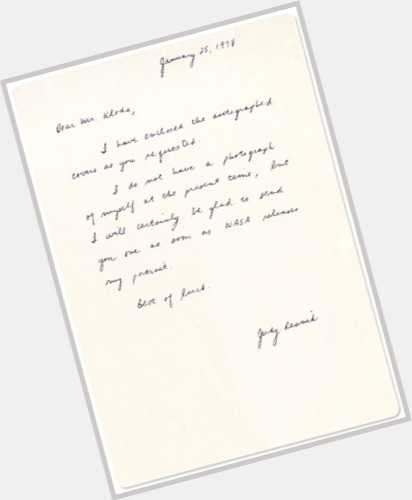 January 25, 1978
Dear Mr. Kloda,
I have enclosed the autographed
covers as you requested.
I do not have a photograph
of myself at the present time, but
I will certainly be glad to send
you one as soon as NASA releases
my portrait.
Best of luck.
Judy Resnik